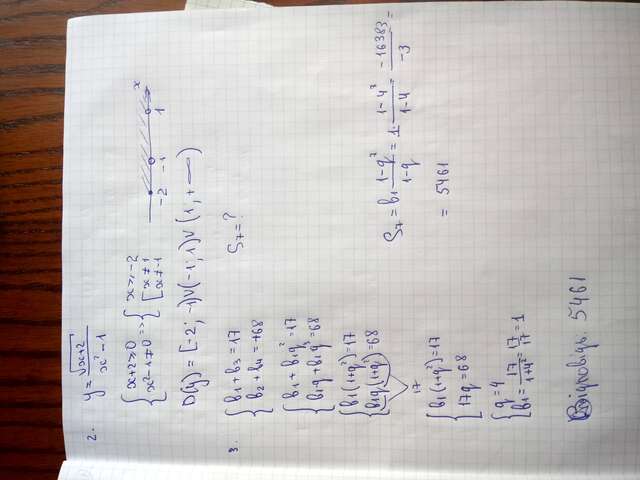 2. y = √x+2 / x² - 1
{ x+2 ≥ 0 => { x ≥ -2
x² - 1 ≠ 0 [ x ≠ 1
x ≠ -1
-2 -1 1 x
D(y) = [-2; -1) ∪ (-1; 1) ∪ (1, +∞)
3. { b₁ + b₃ = 17 S₇ = ?
b₂ + b₄ = +68
{ b₁ + b₁q² = 17
b₁q + b₁q³ = 68
{ b₁(1+q²) = 17
b₁q(1+q²) = 68
17
S₇ = b₁ 1-q⁷ / 1-q = 1 · 1-4⁷ / 1-4 = -16383 / -3 =
= 5461
{ b₁(1+q²) = 17
17q = 68
{ q = 4
b₁ = 17 / 1+4² = 17 / 17 = 1
Відповідь. 5461